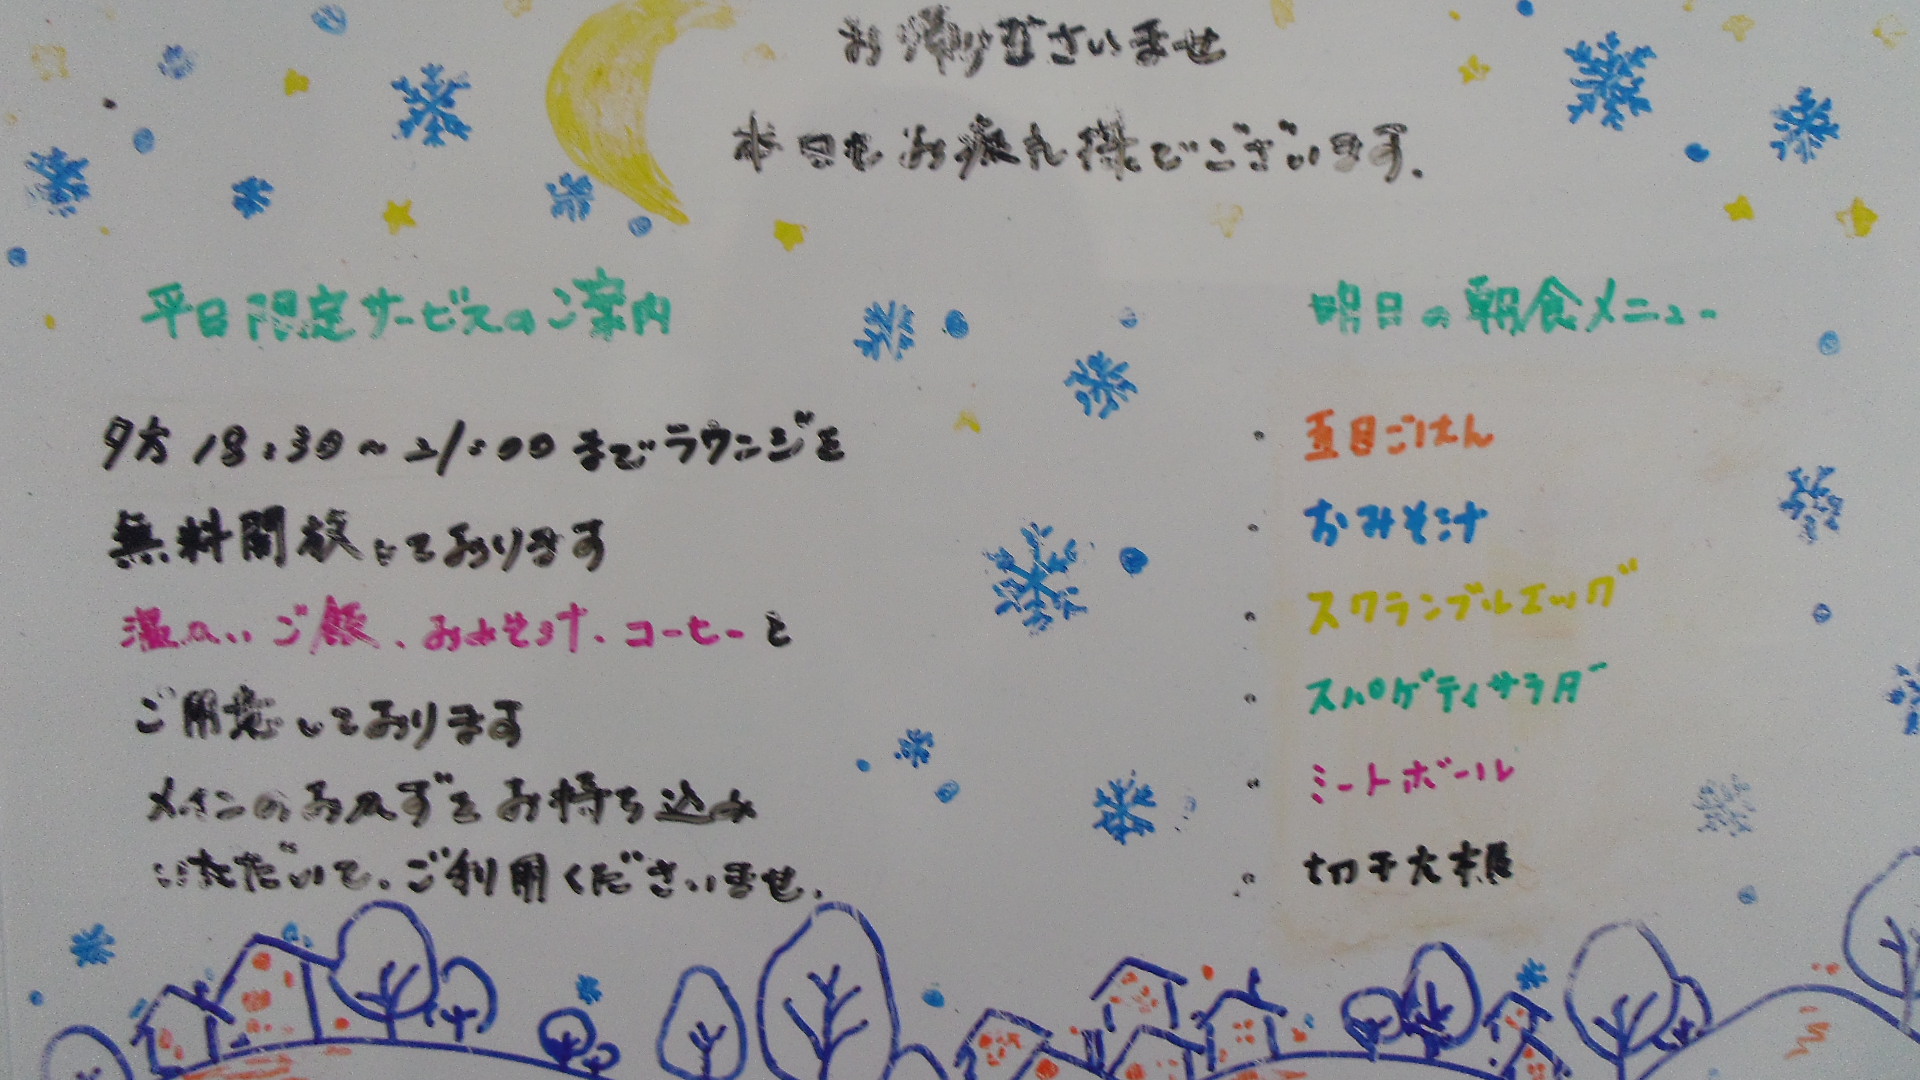 お帰りなさいませ
本日もお疲れ様でございます.
平日限定サービスのご案内
夕方 18:30~21:00 までラウンジを
無料開放しております
温かいご飯、おみそ汁、コーヒーと
ご用意しております
メインのおかずをお持ち込み
いただいて、ご利用くださいませ.
明日の朝食メニュー
・五目ごはん
・おみそ汁
・スクランブルエッグ
・スパゲティサラダ
・ミートボール
・切干大根